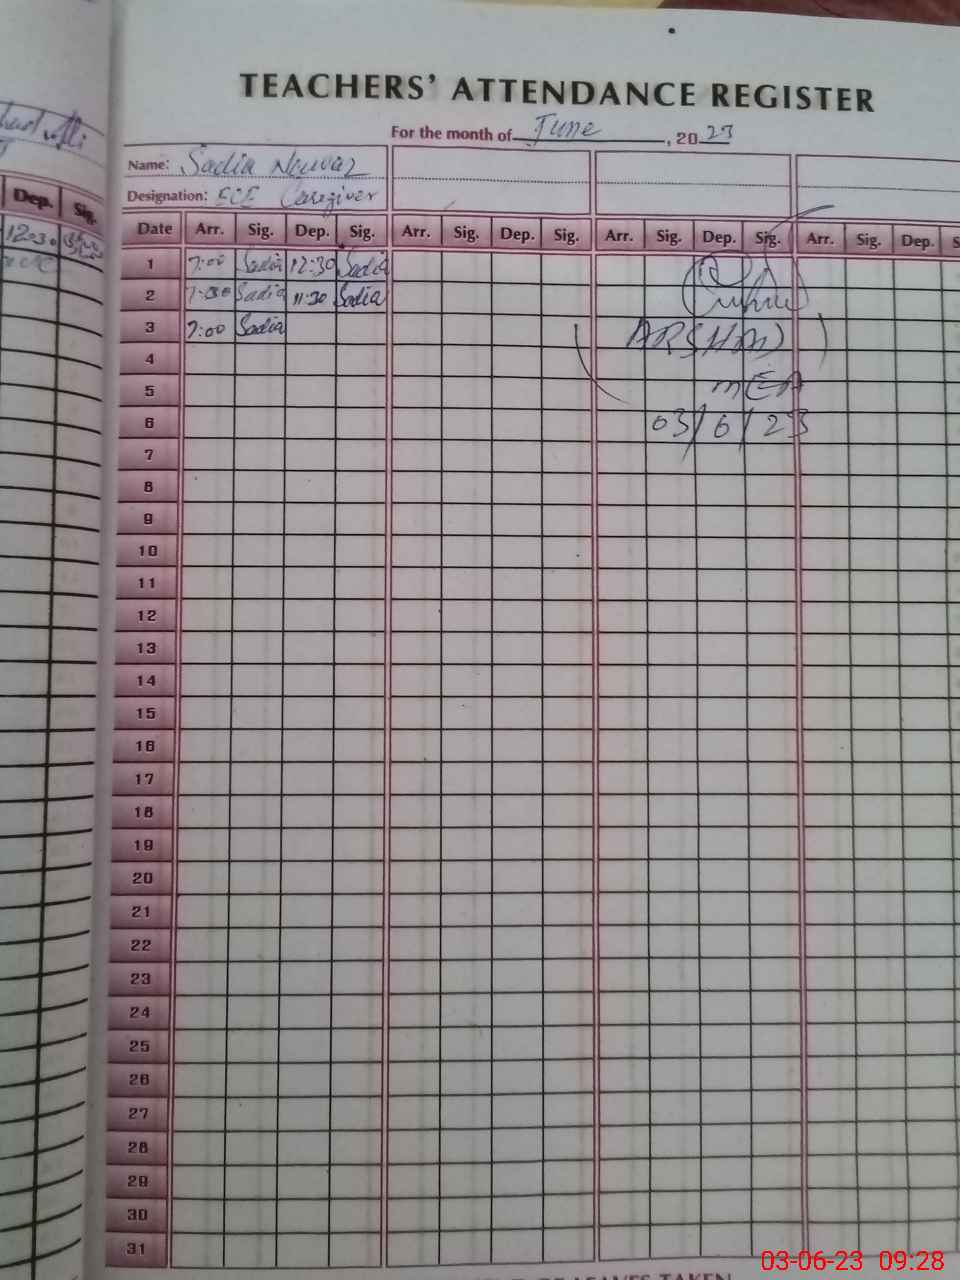 TEACHERS' ATTENDANCE REGISTER
For the month of June, 2023
Name: Sadia Nawaz
Designation: ECE Caregiver
Dep. Sig.
12:30
Date Arr. Sig. Dep. Sig. Arr. Sig. Dep. Sig. Arr. Sig. Dep. Sig. Arr. Sig. Dep. S
1 7:00 Sadia 12:30 Sadia
2 7:00 Sadia 11:30 Sadia
3 7:00 Sadia
(ARSHAD)
4
5
MEA
6
03/6/23
7
8
9
10
11
12
13
14
15
16
17
18
19
20
21
22
23
24
25
26
27
28
29
30
31
LEAVES TAKEN
03-06-23 09:28